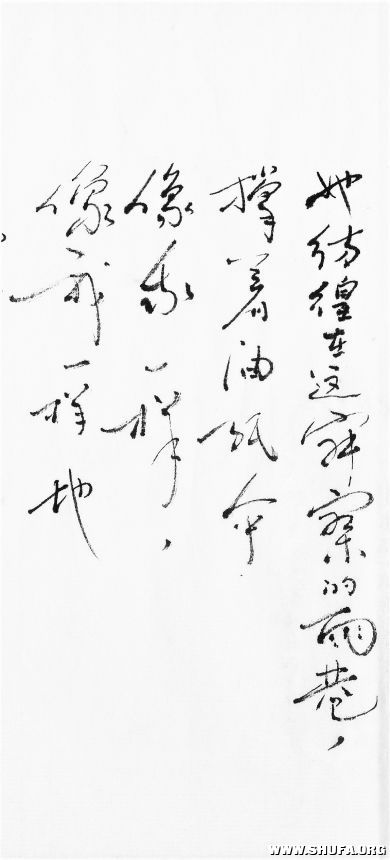 她彷徨在这寂寥的雨巷，
撑着油纸伞
像我一样，
像我一样地
WWW.SHUFA.ORG